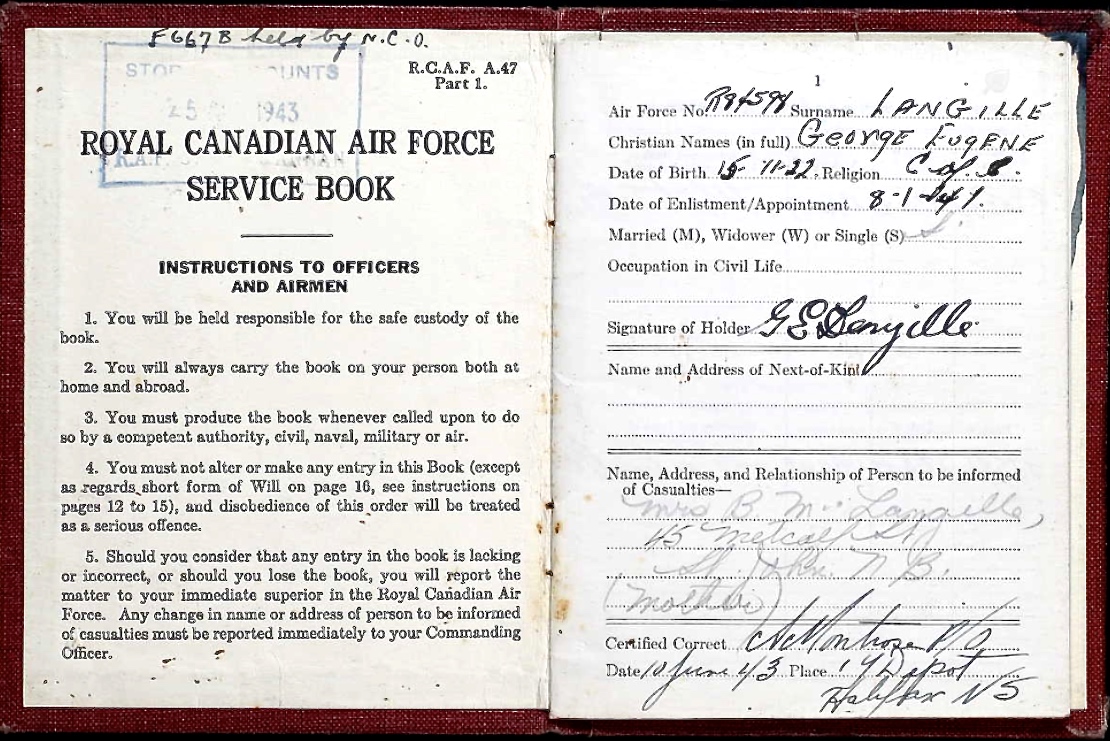 F667B held by N.C.O.
R.C.A.F. A.47
Part 1.
25 1943
ROYAL CANADIAN AIR FORCE
SERVICE BOOK
INSTRUCTIONS TO OFFICERS
AND AIRMEN
1. You will be held responsible for the safe custody of the
book.
2. You will always carry the book on your person both at
home and abroad.
3. You must produce the book whenever called upon to do
so by a competent authority, civil, naval, military or air.
4. You must not alter or make any entry in this Book (except
as regards short form of Will on page 16, see instructions on
pages 12 to 15), and disobedience of this order will be treated
as a serious offence.
5. Should you consider that any entry in the book is lacking
or incorrect, or should you lose the book, you will report the
matter to your immediate superior in the Royal Canadian Air
Force. Any change in name or address of person to be informed
of casualties must be reported immediately to your Commanding
Officer.
1
Air Force No. R84598 Surname LANGILLE
Christian Names (in full) GEORGE EUGENE
Date of Birth 15-11-22. Religion C of E.
Date of Enlistment/Appointment 8-1-41.
Married (M), Widower (W) or Single (S) S.
Occupation in Civil Life
Signature of Holder G E Langille
Name and Address of Next-of-Kin
Name, Address, and Relationship of Person to be informed
of Casualties—
Mrs B. M. Langille,
45 Metcalf St
St. John. N B.
(Mother)
Certified Correct Montrose P/O
Date 10 June 43 Place Depot
Halifax NS